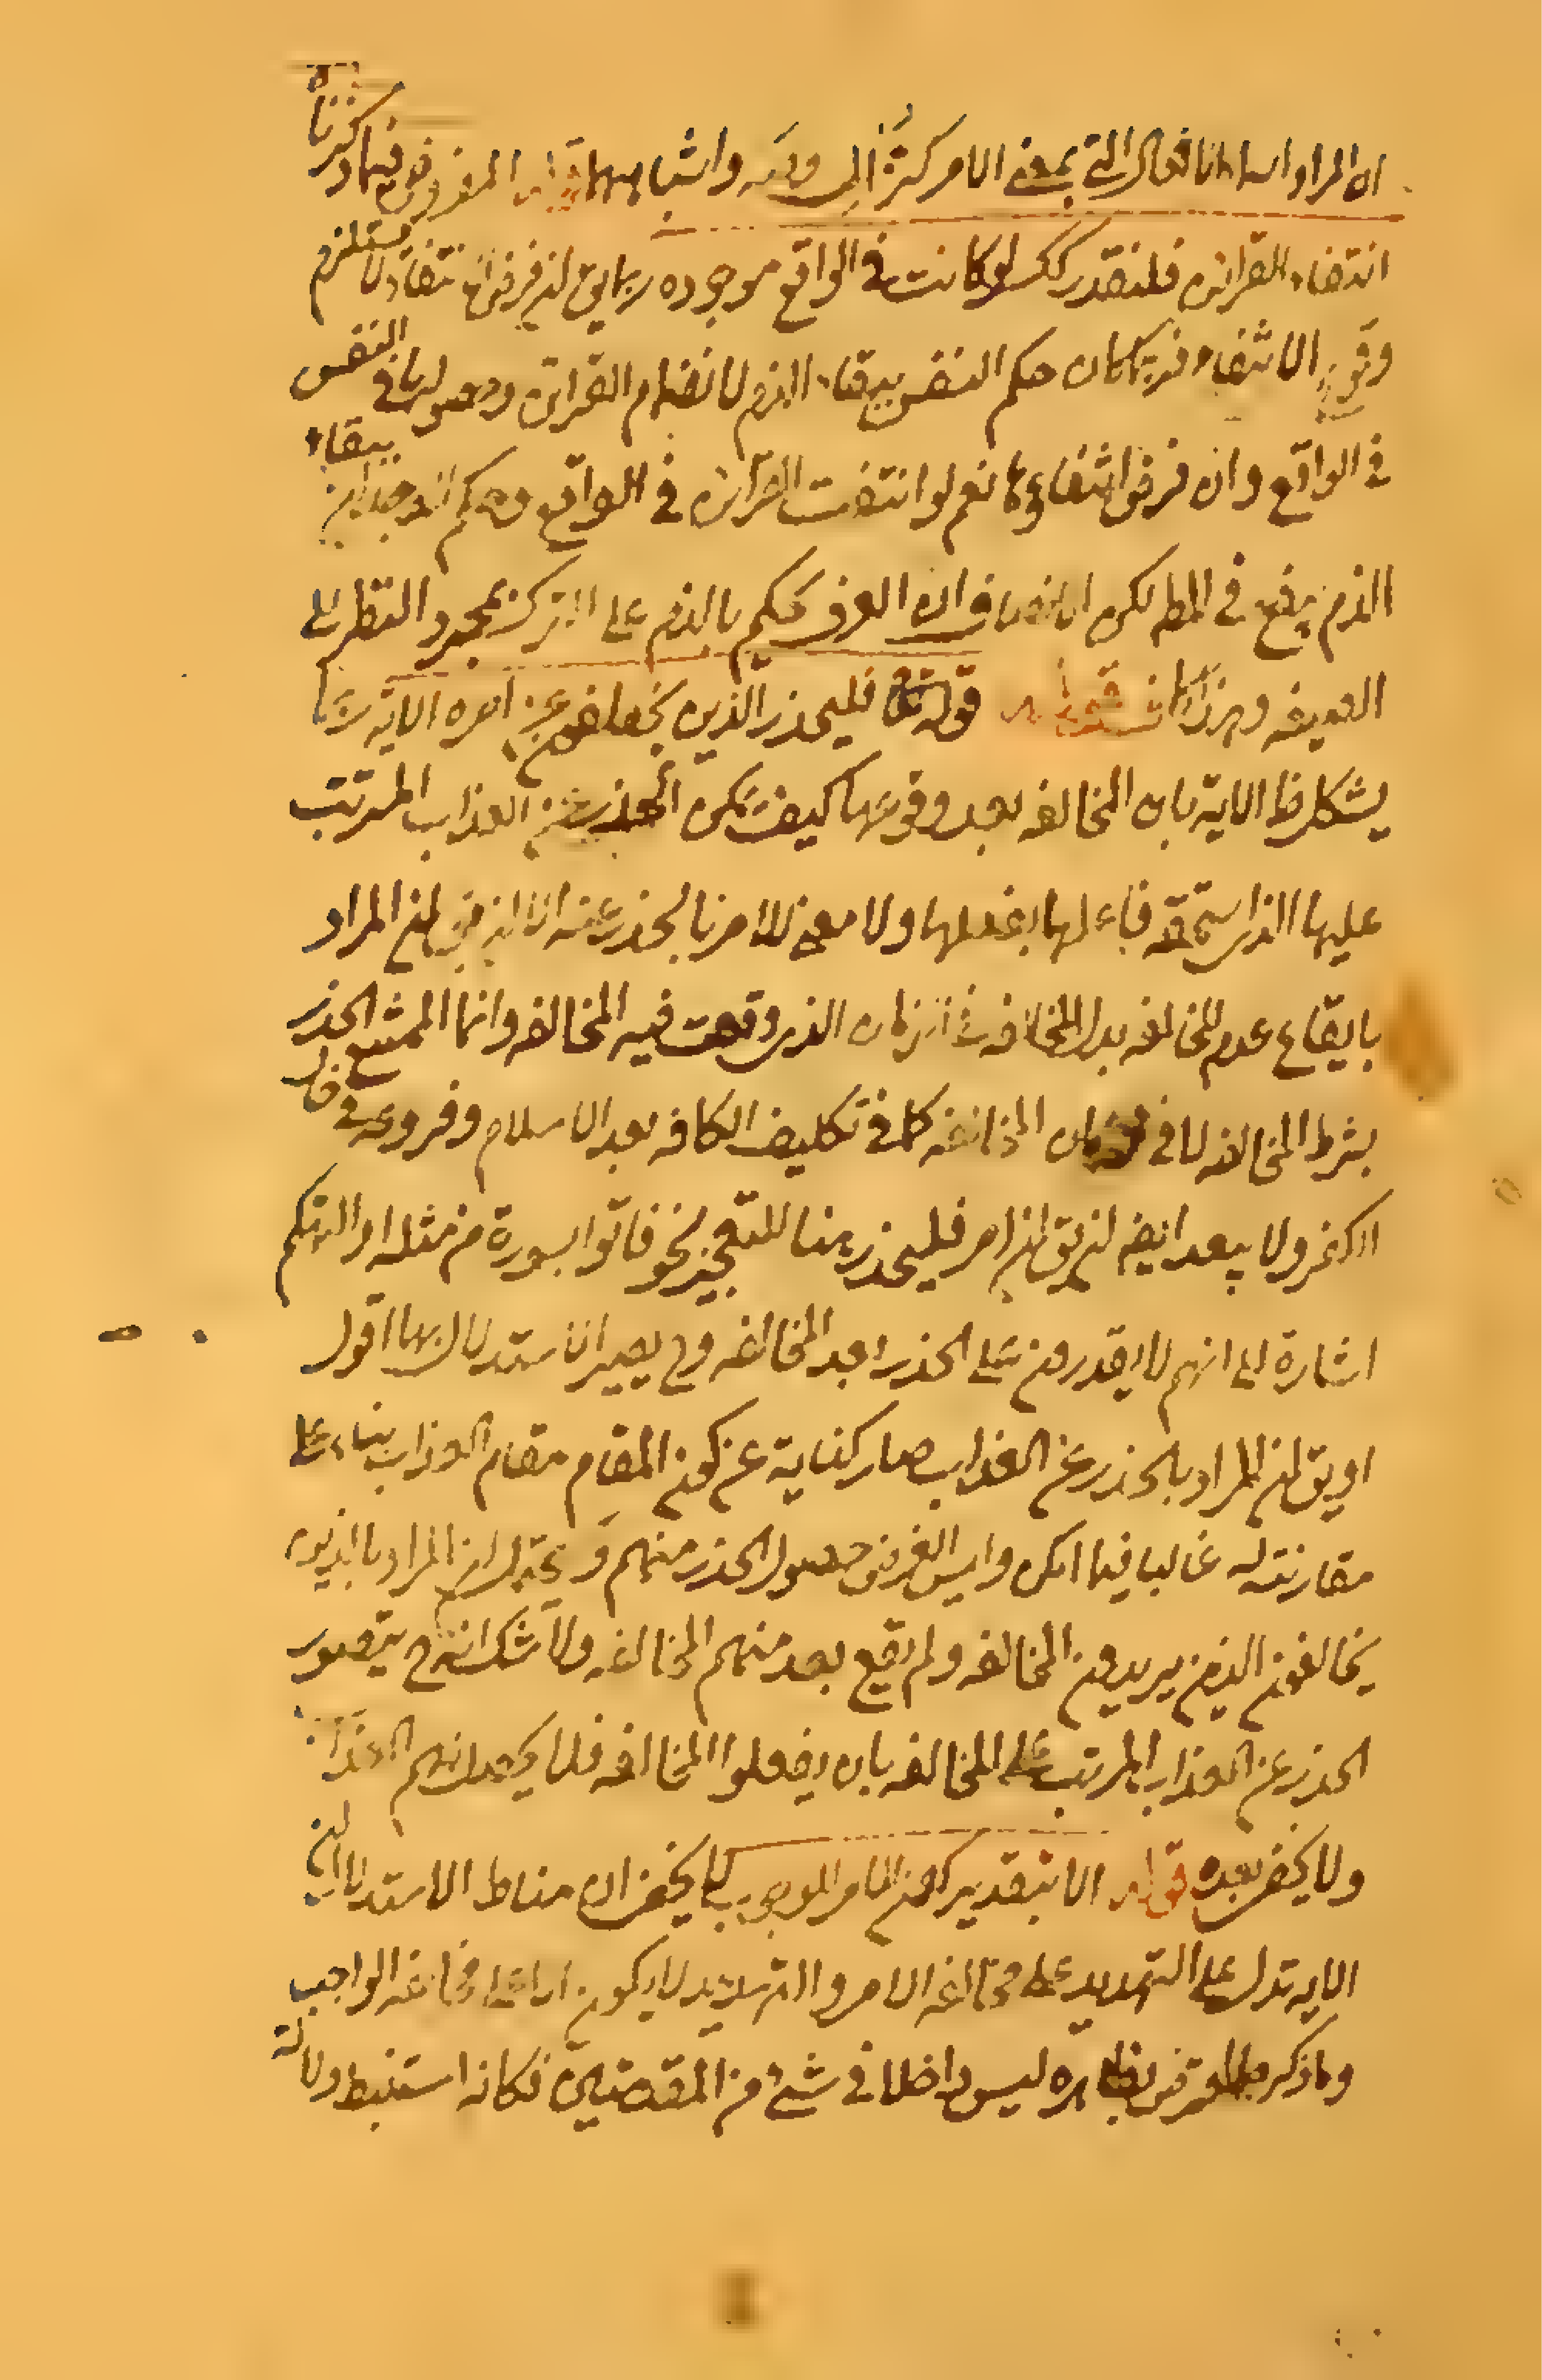 ان المراد اسماء الافعال التي بمعنى الامر كنزال وصه واشباههما قوله المفروض فيما ذكرناه
انتفاء القرائن فلنقدر كك لو كانت في الواقع موجوده ربما يق ان فرض انتفائها لا يستلزم
وقوع الانتفاء فربما كان حكم النفس ببقاء الذم لانضمام القرائن وحصولها في النفس
في الواقع وان فرض انتفاؤها نعم لو انتفت القرائن في الواقع وحكم الوجدان ببقاء
الذم ينفع في المط لكن الانصاف ان العرف يحكم بالذم على الترك بمجرد النظر الى
الصيغه وهذا كاف قوله قوله تعالى فليحذر الذين يخالفون عن امره الآية ربما
يشكل هذا الاية بان المخالفه بعد وقوعها كيف يمكن الحذر عن العذاب المرتب
عليها الذي استحقه فاعلها بفعلها ولا معنى للامر بالحذر عنه الا ان يق ان المراد
بايقاع عدم المخالفه بدل المخالفه في الزمان الذي وقعت فيه المخالفه وانما الممتنع الحذر
بشرط المخالفه لا في زمان المخالفه كما في تكليف الكافر بعد الاسلام وفروعه في حال
الكفر ولا يبعد ايضا ان يق ان امر فليحذر هنا للتعجيز نحو فاتوا بسورة من مثله او التهكم
اشارة الى انهم لا يقدرون على الحذر بعد المخالفه وح يصير الاستدلال بها اقول
او يق ان المراد بالحذر عن العذاب صار كناية عن كون المقام مقام العذاب بناء على
مقارنته له غالبا فيما امكن وليس الغرض حصول الحذر منهم ويحتمل ان المراد بالذين
يخالفون الذين يريدون المخالفه ولم يقع بعد منهم المخالفه ولا شك انه ح يتصور
الحذر عن العذاب المرتب على المخالفه بان يفعلوا المخالفه فلا يحصل لهم العذاب
ولا يخفى بعده قوله الا بتقدير كون الامر للوجوب لا يخفى ان مناط الاستدلال ان
الايه تدل على التهديد على مخالفه الامر والتهديد لا يكون الا على مخالفه الواجب
وما ذكره المعترض بظاهره ليس داخلا في شئ من المقدمتين فكانه استنبط دلالة